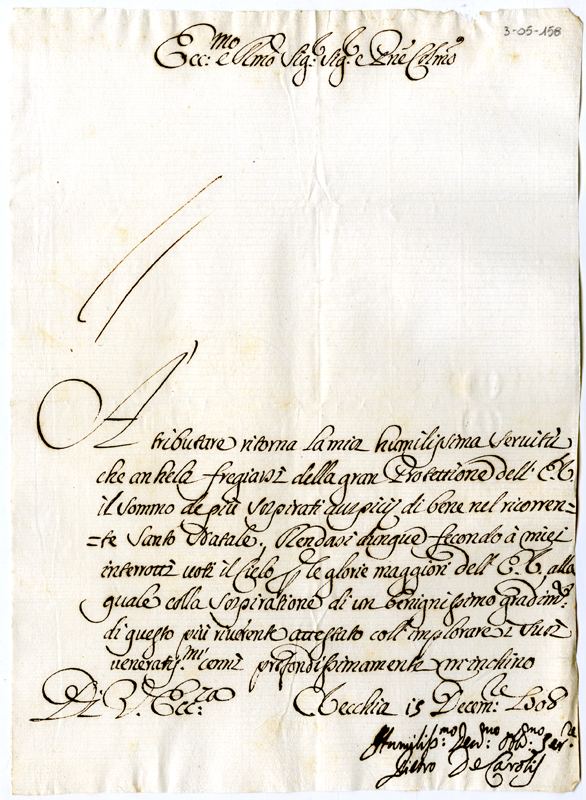 3-05-158
Ecc:mo e Illmo Sig:r Sig:r e Pne Colmo
A tributare ritorna la mia humilissima servitù
che anhela fregiarsi della gran Protettione dell' E. V.
il sommo de più sospirati auspicij di bene nel ricorren=
=te Santo Natale. Rendasi dunque fecondo à miei
interrotti voti il Cielo p le glorie maggiori dell' E. V. alla
quale colla sospiratione di un benignissimo gradim:to
di questo più riverente attestato coll' implorare i suoi
veneratis:mi cenni profondissimamente m'inchino
Di V. Ecc:za
Vecchia 15 Decem:re 1708
Humiliss:mo Dev:mo Obb:mo Ser:re
Pietro De Carolis